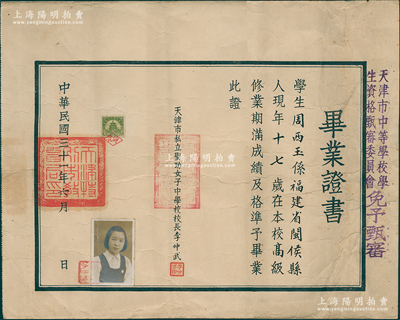 上海陽明拍賣
www.ymingauction.com
畢業證書
學生周西玉係福建省閩侯縣
人現年十七歲在本校高級
修業期滿成績及格準予畢業
此證
天津市私立聖功女子中學校校長李仲武
中華民國三十一年六月 日
天津市中等學校學
生資格甄審委員會免予甄審
上海陽明拍賣
www.ymingauction.com